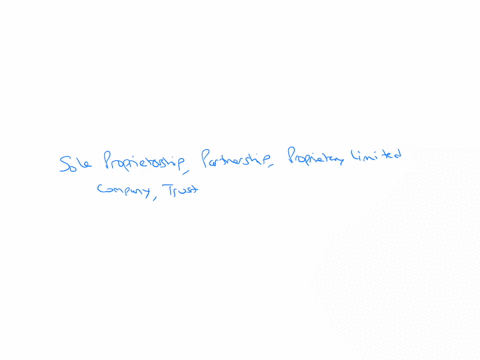 Sole Proprietorship, Partnership, Proprietary Limited
Company, Trust